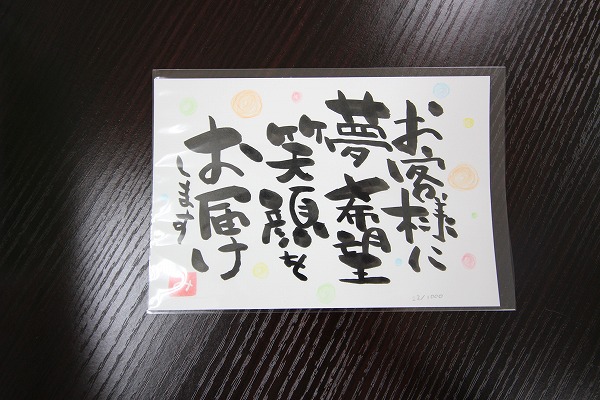 お客様に
夢 希望
笑顔を
お届け
します
み
12/1000